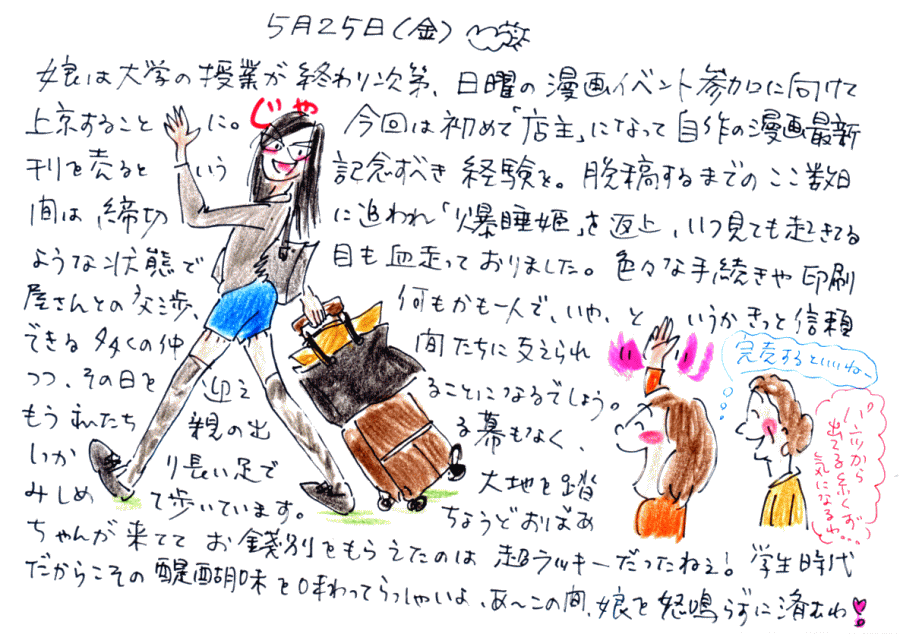 5月25日(金)
娘は大学の授業が終わり次第、日曜の漫画イベント参加に向けて
上京することに。 今回は初めて「店主」になって自作の漫画最新
刊を売るという 記念すべき経験を。脱稿するまでのここ数日
間は締切 に追われ「爆睡姫」を返上、いつ見ても起きてる
ような状態で 目も血走っておりました。色々な手続きや印刷
屋さんとの交渉、 何もかも一人で、いや、というかきっと信頼
できる多くの仲 間たちに支えられ
つつ、その日を迎え ることになるでしょう。
もうわたち 親の出 る幕もなく、
しっか り長い足で 大地を踏
みしめ て歩いています。 ちょうどおばあ
ちゃんが来てて お餞別をもらえたのは 超ラッキーだったねぇ!学生時代
だからこその醍醐味を味わってらっしゃいよ、あ〜この間、娘を怒鳴らずに済むわ
じゃ
完売するといいね〜
パンツから
出てる糸くず
気になるわ…